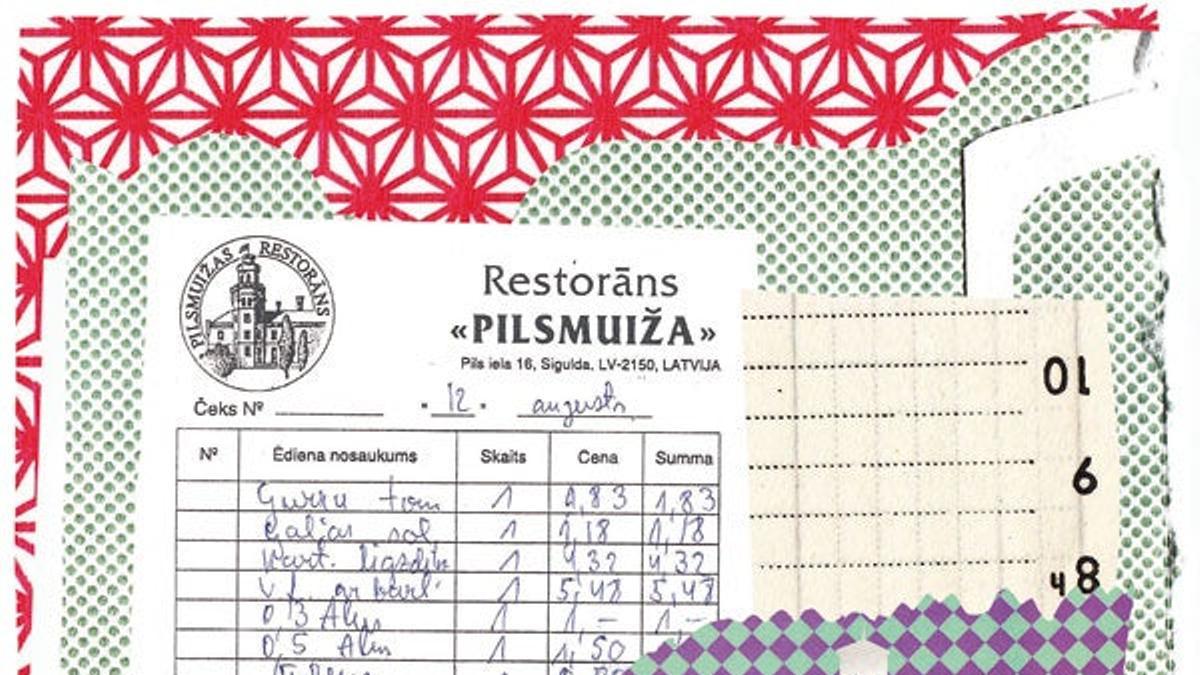 PILSMUIŽAS RESTORĀNS
Restorāns
«PILSMUIŽA»
Pils iela 16, Sigulda, LV-2150, LATVIJA
Čeks Nº 12 augusts
Nº Ēdiena nosaukums Skaits Cena Summa
Gurķu tom 1 1,83 1,83
sol 1 1,18 1,18
Kart. 1 4,32 4,32
ar 1 5,48 5,48
0,3 Alus 1 1,- 1,-
0,5 Alus 1 1,50
10
9
8 ч